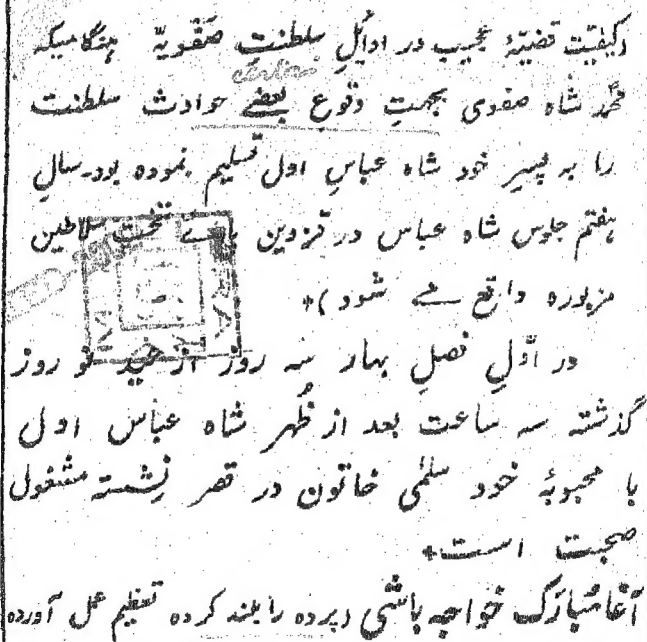 (کیفیّت قضیّهٔ عجیب در اوائلِ سلطنتِ صَفَویّه ہنگامیکہ
محمّد شاہ صفوی بجہتِ وقوعِ بعضے حوادث سلطنت
را بہ پسرِ خود شاہ عباسِ اول تسلیم نمودہ بود۔سالِ
ہفتم جلوس شاہ عباس در قزوین پائے تختِ سلاطین
مزبورہ واقع مے شود)+
در اوّلِ فصلِ بہار سہ روز از عید نو روز
گذشتہ سہ ساعت بعد از ظُہر شاہ عباس اول
با محبوبۂ خود سلمٰی خاتون در قصر نِشستہ مشغول
صحبت است+
آغا مُبارَک خواجہ باشی (پردہ را بلند کردہ تعظیم عمل آوردہ